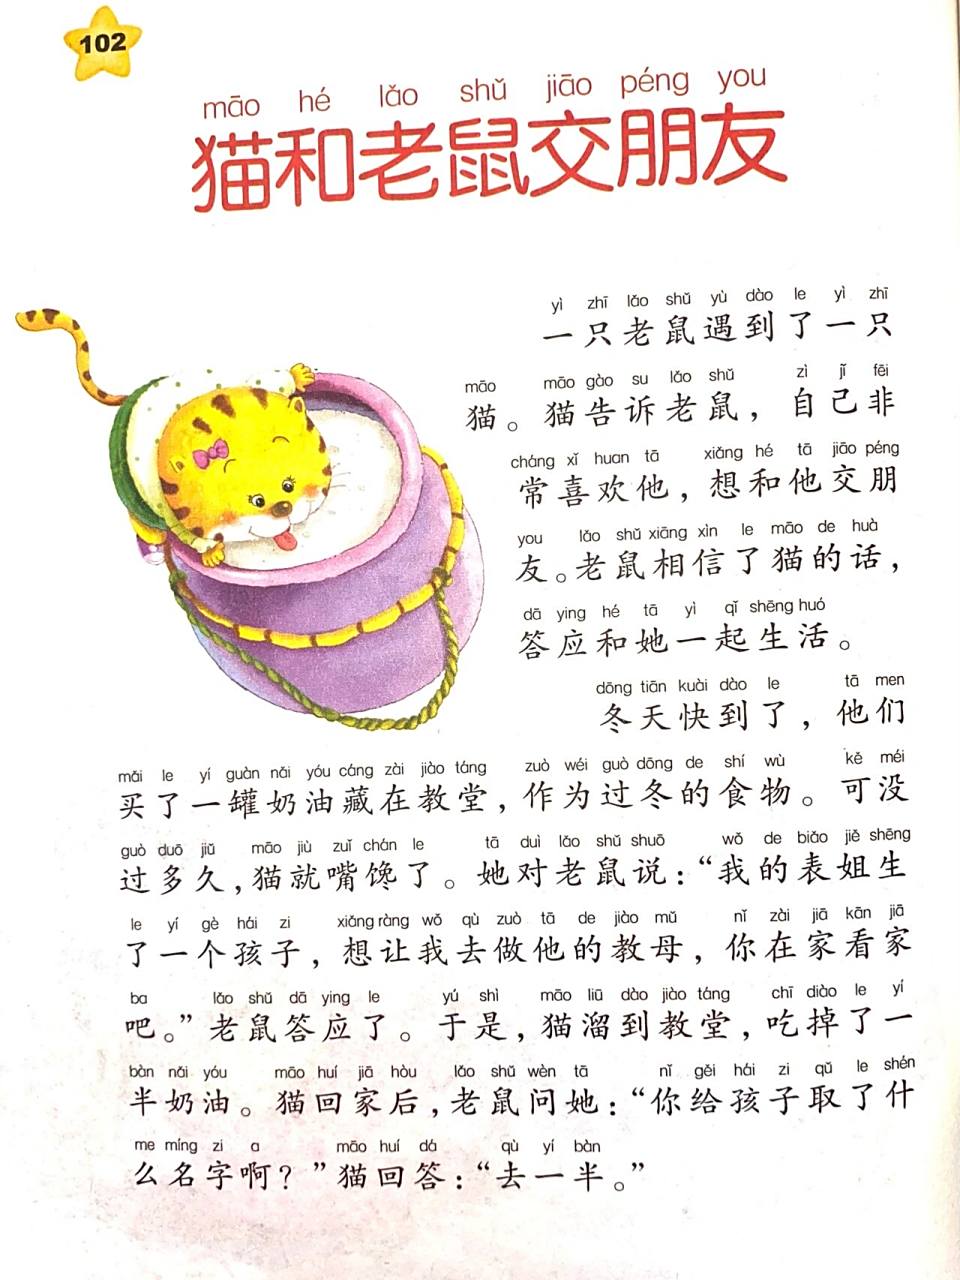 102
māo hé lǎo shǔ jiāo péng you
猫和老鼠交朋友
yì zhī lǎo shǔ yù dào le yì zhī
一只老鼠遇到了一只
māo māo gào su lǎo shǔ zì jǐ fēi
猫。猫告诉老鼠，自己非
cháng xǐ huan tā xiǎng hé tā jiāo péng
常喜欢他，想和他交朋
you lǎo shǔ xiāng xìn le māo de huà
友。老鼠相信了猫的话，
dā ying hé tā yì qǐ shēng huó
答应和她一起生活。
dōng tiān kuài dào le tā men
冬天快到了，他们
mǎi le yí guàn nǎi yóu cáng zài jiào táng zuò wéi guò dōng de shí wù kě méi
买了一罐奶油藏在教堂，作为过冬的食物。可没
guò duō jiǔ māo jiù zuǐ chán le tā duì lǎo shǔ shuō wǒ de biǎo jiě shēng
过多久，猫就嘴馋了。她对老鼠说：“我的表姐生
le yí gè hái zi xiǎng ràng wǒ qù zuò tā de jiào mǔ nǐ zài jiā kān jiā
了一个孩子，想让我去做他的教母，你在家看家
ba lǎo shǔ dā ying le yú shì māo liū dào jiào táng chī diào le yí
吧。”老鼠答应了。于是，猫溜到教堂，吃掉了一
bàn nǎi yóu māo huí jiā hòu lǎo shǔ wèn tā nǐ gěi hái zi qǔ le shén
半奶油。猫回家后，老鼠问她：“你给孩子取了什
me míng zi a māo huí dá qù yí bàn
么名字啊？”猫回答：“去一半。”